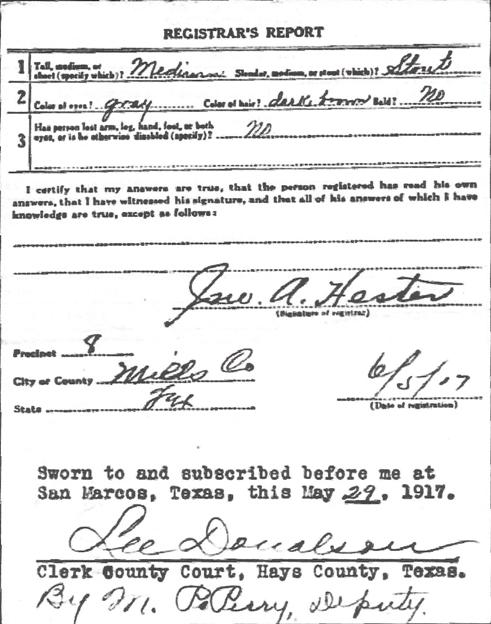 REGISTRAR'S REPORT
1 Tall, medium, or short (specify which)? Medium Slender, medium, or stout (which)? Stout
2 Color of eyes? gray Color of hair? dark brown Bald? No
3 Has person lost arm, leg, hand, foot, or both eyes, or is he otherwise disabled (specify)? No
I certify that my answers are true, that the person registered has read his own
answers, that I have witnessed his signature, and that all of his answers of which I have
knowledge are true, except as follows:
Jno. A. Hester
(Signature of registrar)
Precinct 8
City or County Mills Co
State Tex
6/5/17
(Date of registration)
Sworn to and subscribed before me at
San Marcos, Texas, this May 29, 1917.
Lee Donalson
Clerk County Court, Hays County, Texas.
By M. Perry, Deputy.